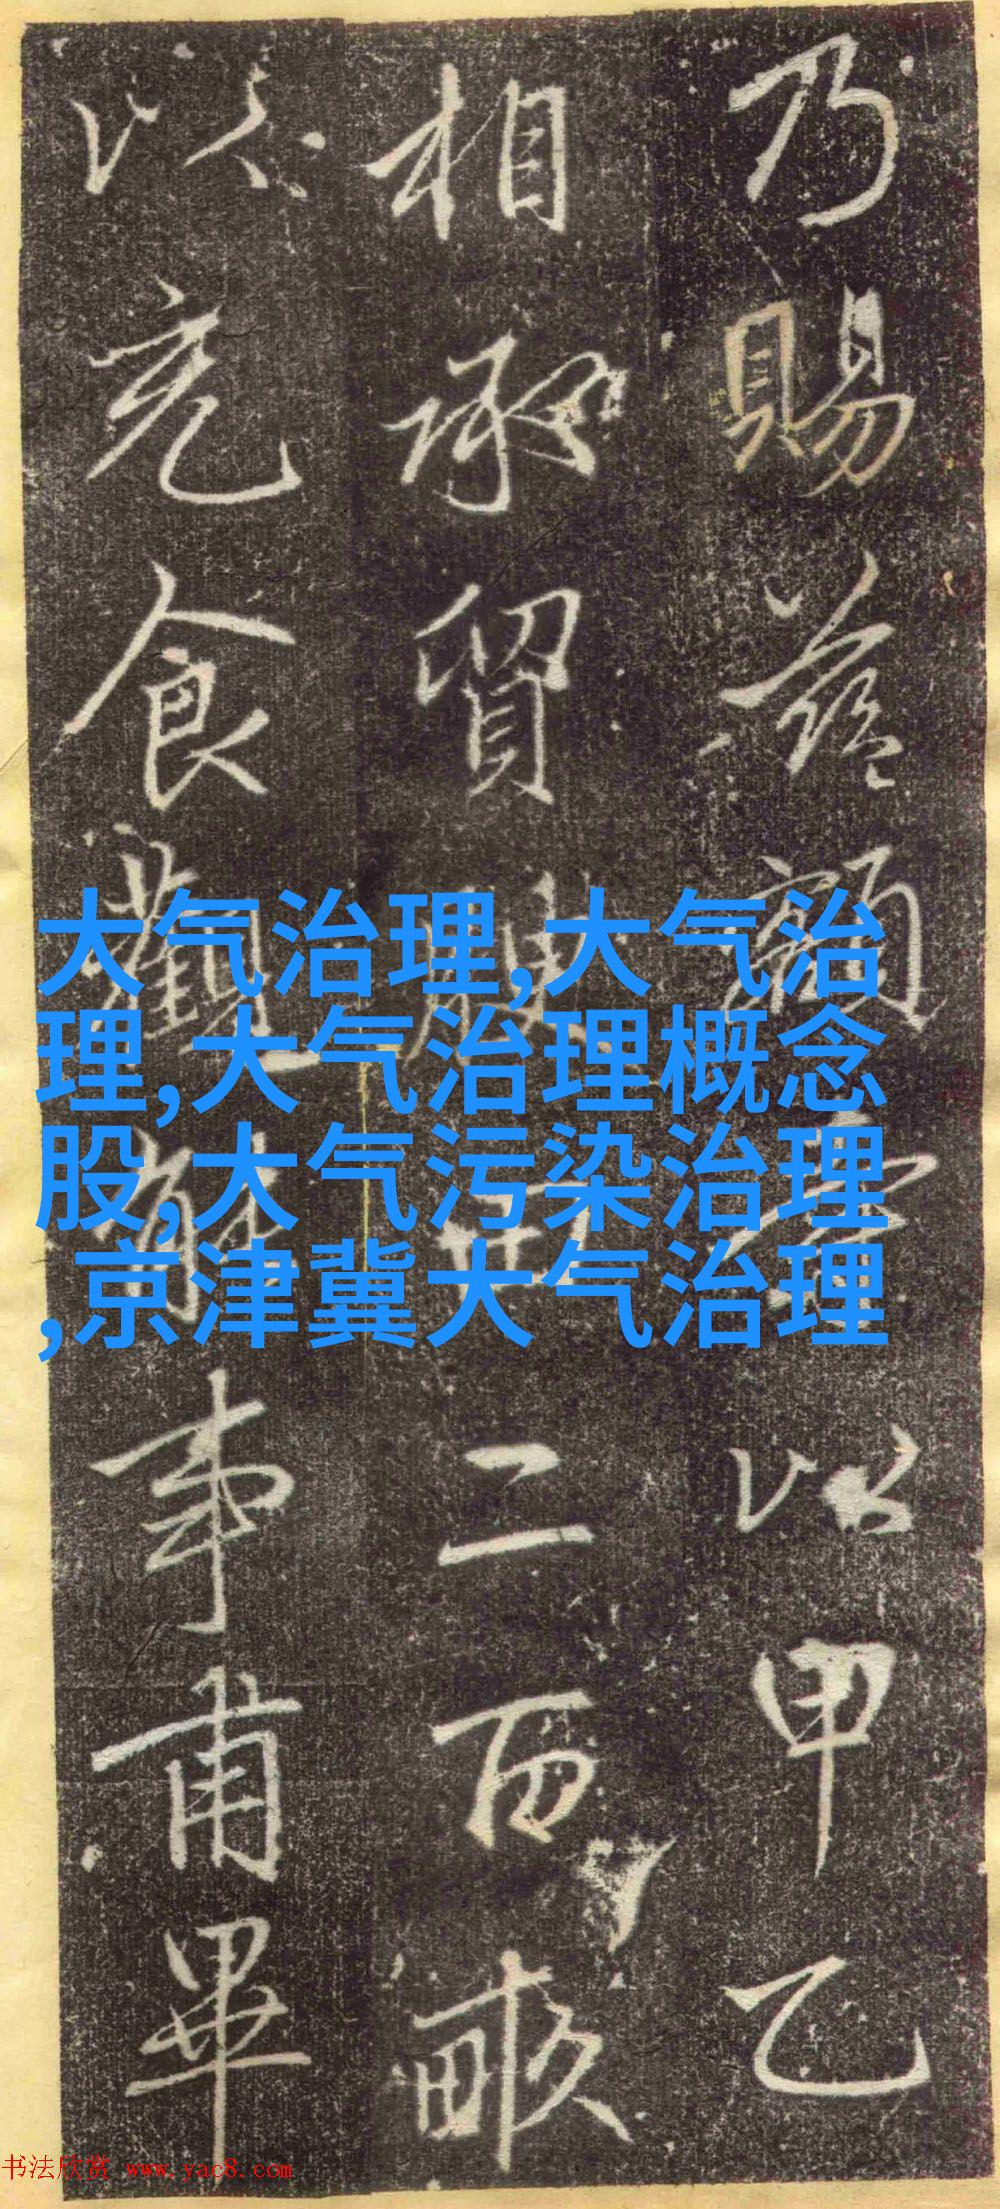 乃賜額以甲乙
相承貿田二百畝
以充食觀事甫畢
大气治理,大气治
理,大气治理概念
股,大气污染治理
,京津冀大气治理
书法欣赏 www.yac8.com